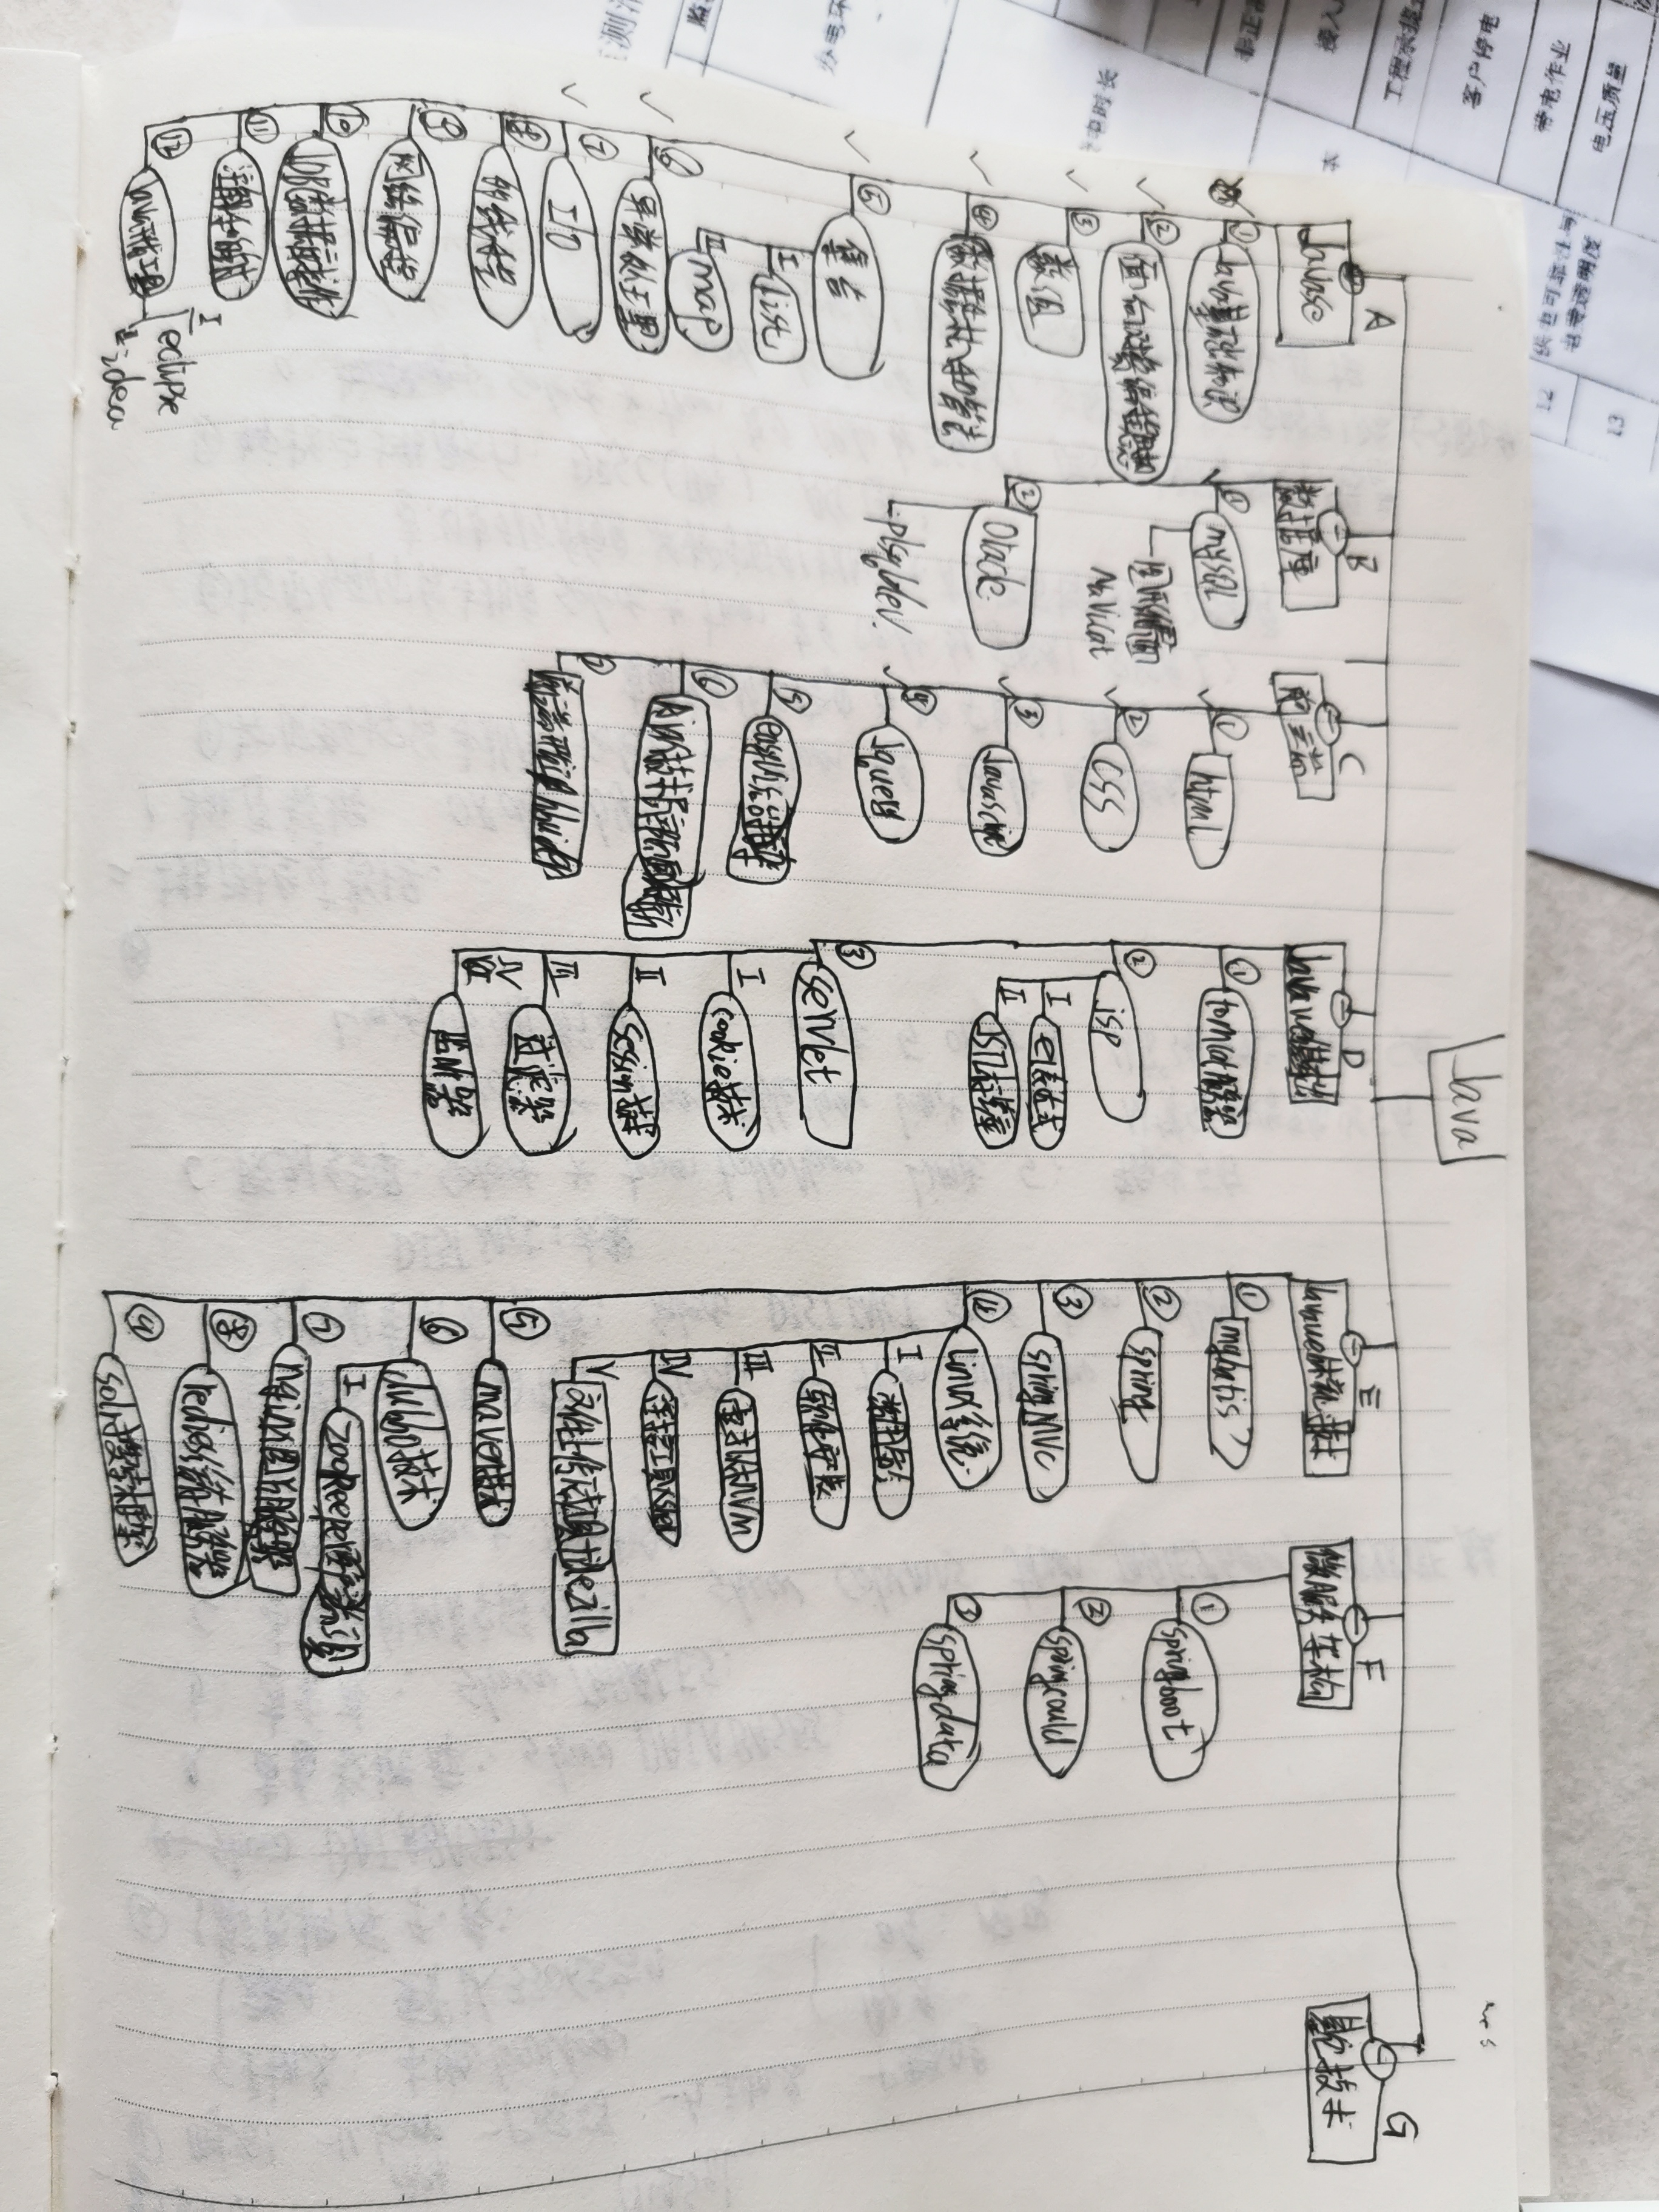 Java
A
Javase
① Java基础知识
② 面向对象编程思想
③ 数组
④ 数据结构和算法
⑤ 集合
I list
II map
⑥ 异常处理
⑦ I/O
⑧ 的线程
⑨ 网络编程
⑩ JDBC数据库操作
⑪ 注解和
⑫ Java开发工具
I eclipse
II idea
B
数据库
① mySQL
图形界面
Navicat
② Oracle
plsqldev.
C
前端
① html
② CSS
③ Javascript
④ Jquery
⑤ easyUI后台框架
⑥ Ajax技术局部页面刷新
⑦ 前端开发工具hbuider
D
Javaweb基础
① tomcat服务器
② jsp
I el表达式
II JSTL标签库
③ servlet
I cookie技术
II session技术
III 过滤器
IV 监听器
E
Javaweb体系技术
① mybatis
② spring
③ spring MVC
④ Linux系统
I 常用命令
II 软件安装
III 虚拟机
IV 连接工具xshell
V 文件上传下载工具filezilla
⑤ maven技术
⑥ dubbo技术
I zookeeper客户端工具
⑦ nginx图片服务器
⑧ redies缓存服务器
⑨ solr搜索框架
F
微服务架构
① springboot
② springcould
③ springdata
G
其它技术
13
12
电压质量
带电作业
客户停电